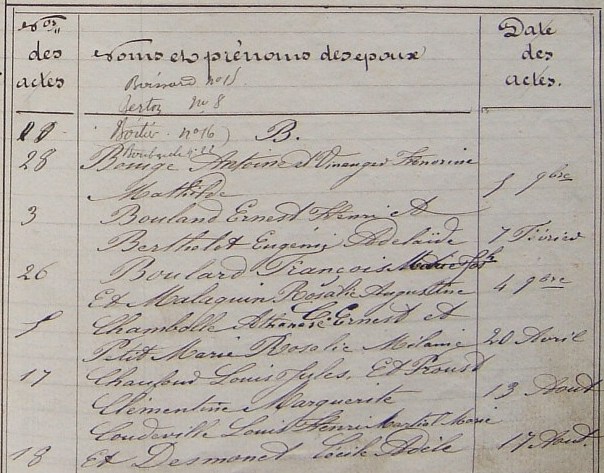 Nos
des
actes
Noms et prénoms des epoux
Date
des
actes.
Boissard no 15
no 8
Bottier no 16
B.
28 Antoine et Honorine
Mathilde 5 9bre
3 Bouland Ernest Henri et
Berthelot Eugénie Adelaïde 7 Février
26 Boulard François
Et Malaquin Rosalie Augustine 4 9bre
C.
5 Chambolle Athanase Ernest et
Petit Marie Rosalie Mélanie 20 Avril
17 Chaufour Louis Jules, Et Proust
Clémentine Marguerite 13 Aout
Coudeville Louis Henri Martial Marie
18 Et Desmonet Cécile Adèle 17 Aout.